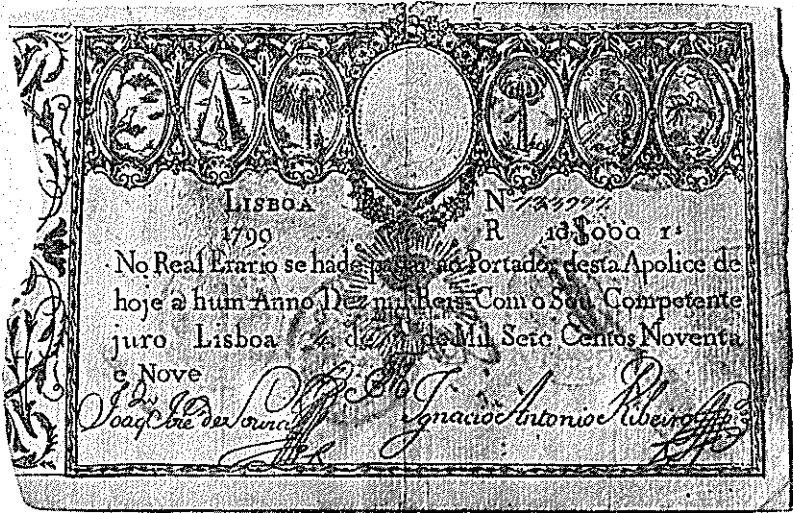 LISBOA N
1799 R 10$000 rs
No Real Erario se hade pagar ao Portador desta Apolice de
hoje a hum Anno Dez mil Reis Com o Seu Competente
juro Lisboa de de Mil Sete Centos Noventa
e Nove
Joaqm José de Souza Ignacio Antonio Ribeiro